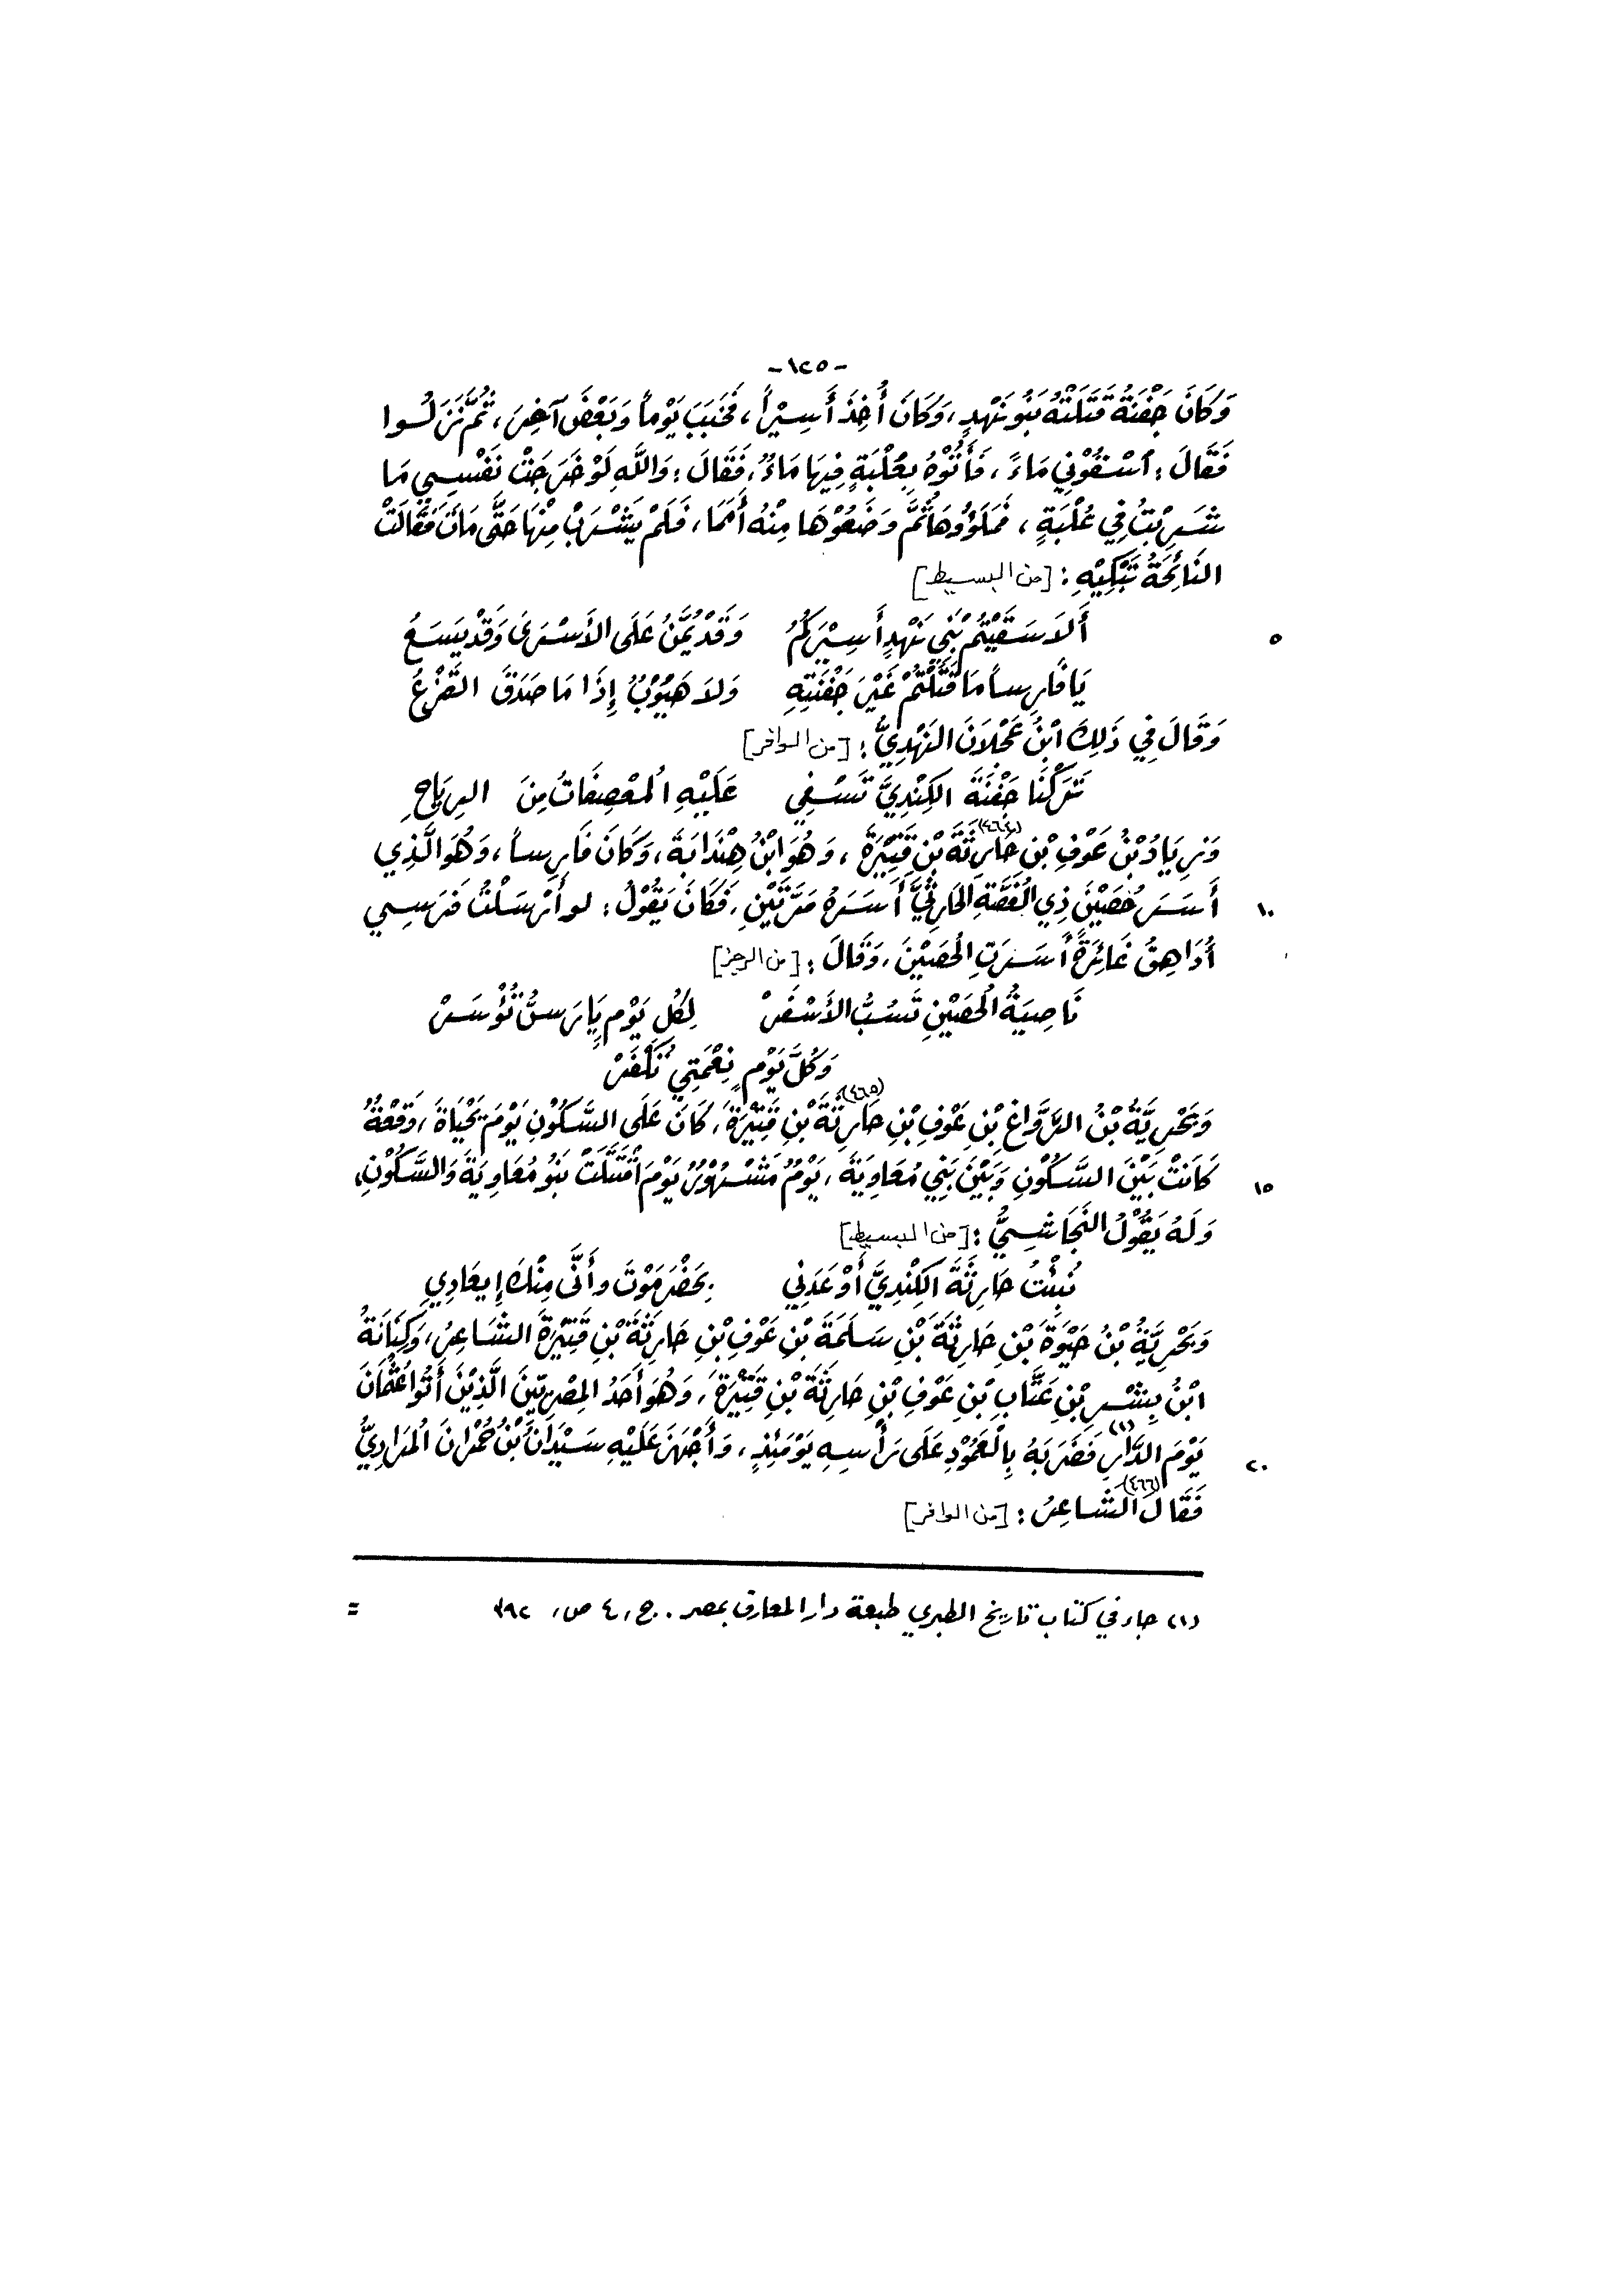 -١٢٥-
وَكَانَ جَفْنَةُ قَتَلَتْهُ بَنُو نَهْدٍ، وَكَانَ أُخِذَ أَسِيْراً، فَخَبَبَ يَوْماً وَبَعْضَ آخَرَ، ثُمَّ نَزَلُوا
فَقَالَ: اُسْقُوْنِي مَاءً، فَأَتَوْهُ بِعُلْبَةٍ فِيهَا مَاءٌ، فَقَالَ: وَاللَّهِ لَوْ خَرَجَتْ نَفْسِي مَا
شَرِبْتُ فِي عُلْبَةٍ، فَمَلَؤُوهَا ثُمَّ وَضَعُوْهَا مِنْهُ أَمَمَا، فَلَمْ يَشْرَبْ مِنْهَا حَتَّى مَاتَ فَقَالَتْ
النَائِحَةُ تَبْكِيْهِ: [من البسيط]
أَلاَ سَقَيْتُمْ بَنِي نَهْدٍ أَسِيْرَكُمُ وَقَدْ يُمَنُّ عَلَى الأَسْرَى وَقَدْ يَسَعُ
٥
يَا فَارِساً مَا قَتَلْتُمْ غَيْرَ جَفْنَتِهِ وَلاَ هَيُوْبٌ إِذَا مَا صَدَقَ القَزَعُ
وَقَالَ فِي ذَلِكَ ابْنُ عَجْلاَنَ النَهْدِيُّ: [من الوافر]
تَرَكْنَا جَفْنَةَ الكِنْدِيَّ تَسْفِي عَلَيْهِ المُعْصِفَاتُ مِنَ الرِيَاحِ
وَزِيَادُ بْنُ عَوْفِ بْنِ حَارِثَةَ بْنِ قَتِيْرَةَ (٤٦٤)، وَهُوَ ابْنُ هِنْدَابَةَ، وَكَانَ فَارِساً، وَهُوَ الَّذِي
أَسَرَ حُصَيْنَ ذِي الغُصَّةِ الحَارِثِيَّ أَسَرَهُ مَرَّتَيْنِ، فَكَانَ يَقُوْلُ: لو أَرْسَلْتُ فَرَسِي
١٠
أُدَاهِقُ غَائِرَةً أَسَرَتِ الحُصَيْنَ، وَقَالَ: [من الرجز]
نَاصِيَةُ الحُصَيْنِ تَسُبُّ الأَسْفَرْ لِكُلِ يَوْمٍ يَا رَسَنُ تُؤْسَرْ
وَكُلَّ يَوْمٍ نِعْمَتِي تُكْفَرْ
وَبَحْرِيَّةُ بْنُ الرَوَّاغِ بْنِ عَوْفِ بْنِ حَارِثَةَ بْنِ قَتِيْرَةَ (٤٦٥)، كَانَ عَلَى السَّكُوْنِ يَوْمَ يَحْيَاةَ، وَقْعَةٌ
كَانَتْ بَيْنَ السَّكُوْنِ وَبَيْنَ بَنِي مُعَاوِيَةَ، يَوْمٌ مَشْهُوْرٌ يَوْمَ اقْتَتَلَتْ بَنُو مُعَاوِيَةَ وَالسَّكُوْنِ،
١٥
وَلَهُ يَقُوْلُ النَجَاشِيُّ: [من البسيط]
نُبِئْتُ حَارِثَةَ الكِنْدِيَّ أَوْعَدَنِي بِحَضْرَمَوْتَ وأَنَّى مِنْكَ إِيعَادِي
وَبَحْرِيَّةُ بْنُ حَيْوَةَ بْنِ حَارِثَةَ بْنِ سَلَمَةَ بْنِ عَوْفِ بْنِ حَارِثَةَ بْنِ قَتِيْرَةَ الشَاعِرُ، وَكِنَانَةُ
ابْنُ بِشْرِ بْنِ عَتَّابِ بْنِ عَوْفِ بْنِ حَارِثَةَ بْنِ قَتِيْرَةَ، وَهُوَ أَحَدُ المِصْرِيّينَ الَّذِيْنَ أَتَوْا عُثْمَانَ
يَوْمَ الدَّارِ (١) فَضَرَبَهُ بِالْعَمُوْدِ عَلَى رَأْسِهِ يَوْمَئِذٍ، وَأَجْهَزَ عَلَيْهِ سَيْدَانُ بْنُ حُمْرَانَ المُرَادِيُّ
٢٠
فَقَالَ الشَاعِرُ (٤٦٦): [من الوافر]
(١) جاء في كتاب تاريخ الطبري طبعة دار المعارف بمصر.. ج، ٤ ص، ٣٩٢ =